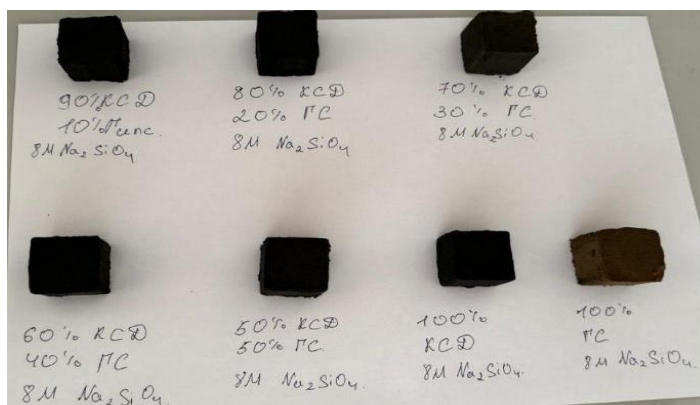 90% КСД
10% Гипс.
8М Na₂SiO₄
80% КСД
20% ГС
8М Na₂SiO₄
70% КСД
30% ГС
8М Na₂SiO₄
60% КСД
40% ГС
8М Na₂SiO₄
50% КСД
50% ГС
8М Na₂SiO₄.
100%
КСД
8М Na₂SiO₄.
100%
ГС
8М Na₂SiO₄.